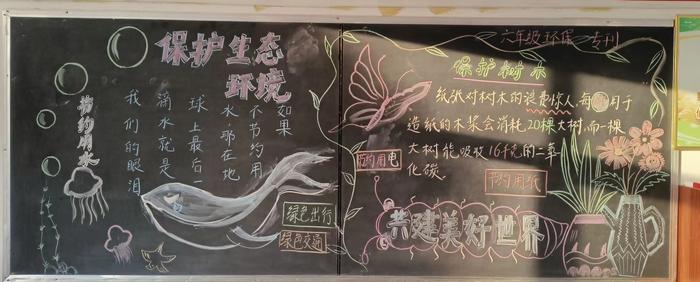 保护生态
环境
节约用水
如果
不节约用
水那在地
球上最后一
滴水就是
我们的眼泪
绿色出行
绿色交通
六年级环保专刊
保护树木
纸张对树木的浪费惊人,每用于
造纸的木浆会消耗20棵大树,而一棵
大树能吸收16千克的二氧
化碳
节约用电
节约用纸
共建美好世界